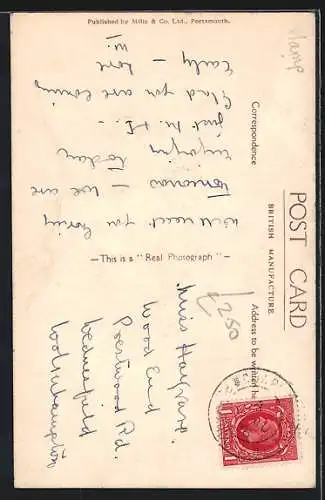 Published by Mills & Co. Ltd., Portsmouth.
POST CARD
BRITISH MANUFACTURE.
Correspondence
Address to be written he
—This is a "Real Photograph"—
will meet you
Tomorrow – we are
enjoying
just
Glad you are coming
Early – love
W.
Miss
Wood End
Prestwood Rd.
Wednesfield
Wolverhampton
£2.50